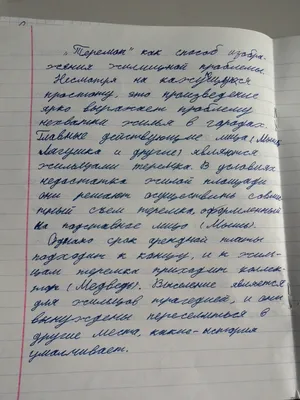 „Теремок" как способ изобра-
жения жилищной проблемы.
Несмотря на кажущуюся
простоту, это произведение
ярко выражает проблему
нехватки жилья в городах.
Главные действующие лица (Мышка,
Лягушка и другие) являются
жильцами теремка. В условиях
недостатка жилой площади
они решают осуществить совмест-
ный съем теремка, оформленный
на подставное лицо (Мыши).
Однако срок арендной платы
подходит к концу, и к жиль-
цам теремка приходит коллек-
тор (Медведь). Выселение является
для жильцов трагедией, и они
вынуждены переселиться в
другие места, какие-история
умалчивает.